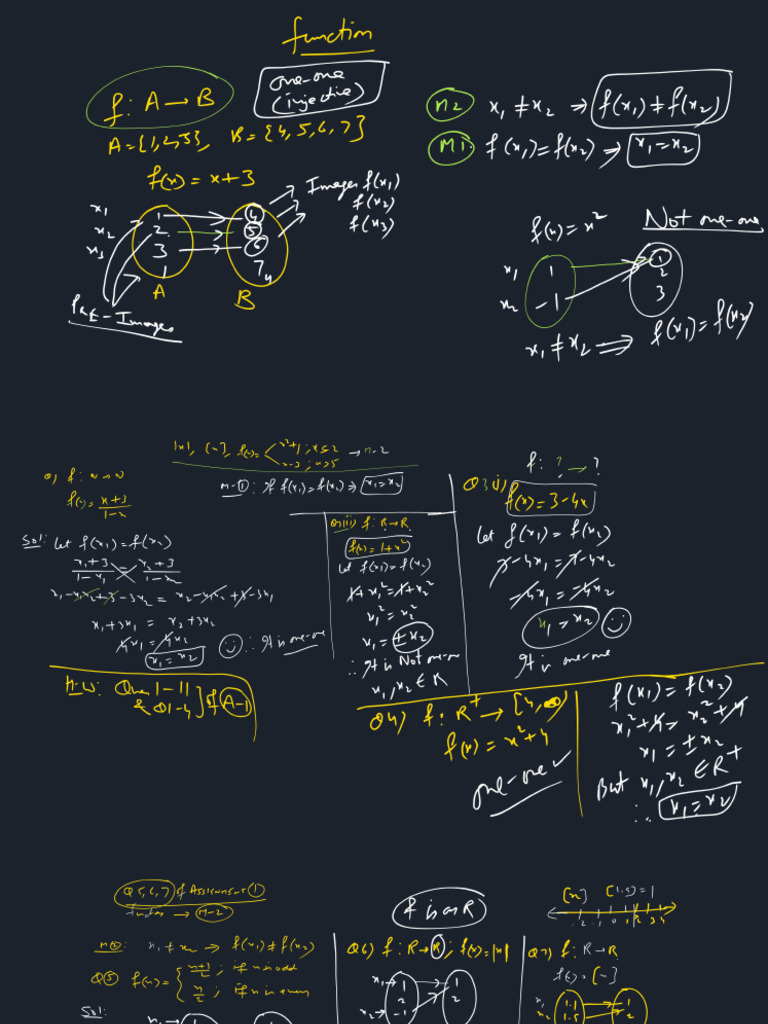 function
f: A → B
one-one
(injective)
A={1,2,3}, B={4,5,6,7}
f(x) = x+3
x₁ 1 4
x₂ 2 5
x₃ 3 6
7
A
B
Images f(x₁)
f(x₂)
f(x₃)
Pre-Images
M2 x₁ ≠ x₂ ⇒ f(x₁) ≠ f(x₂)
M1. f(x₁) = f(x₂) ⇒ x₁ = x₂
f(x) = x² Not one-one
x₁ 1 1
2
x₂ -1 3
x₁ ≠ x₂ ⇒ f(x₁) = f(x₂)
|x|, [x], f(x) = → M-2
M-①: If f(x₁) = f(x₂) ⇒ x₁ = x₂
Q) f: N → N
f(x) = x+3 / 1-x
Sol: Let f(x₁) = f(x₂)
x₁+3 / 1-x₁ = x₂+3 / 1-x₂
x₁ - x₁x₂ + 3 - 3x₂ = x₂ - x₁x₂ + 3 - 3x₁
x₁ + 3x₁ = x₂ + 3x₂
4x₁ = 4x₂
x₁ = x₂
∴ It is one-one
f: R → R
f(x) = 1+x²
Let f(x₁) = f(x₂)
1+x₁² = 1+x₂²
x₁² = x₂²
x₁ = ±x₂
∴ It is Not one-one
x₁, x₂ ∈ R
f: ? → ?
Q3 i)
f(x) = 3-4x
Let f(x₁) = f(x₂)
3-4x₁ = 3-4x₂
-4x₁ = -4x₂
x₁ = x₂
It is one-one
H-W: Ques 1-11
& Q1-4 of A-1
Q4) f: R⁺ → [4, ∞)
f(x) = x²+4
one-one ✓
f(x₁) = f(x₂)
x₁²+4 = x₂²+4
x₁ = ±x₂
But x₁, x₂ ∈ R+
∴ x₁ = x₂
Q5,6,7 of Assignment ①
→ M-2
M②: x₁ ≠ x₂ ⇒ f(x₁) ≠ f(x₂)
Q⑤ f(n) = { n+1 / 2 ; if n is odd
n / 2 ; if n is even
Sol:
f is on R
Q6) f: R → R; f(x) = |x|
x₁ → 1 1
2 2
x₂ → -1
[x] [1.5] = 1
-2 -1 0 1 2 3 4
Q7) f: R → R
f(x) = [x]
x₁ 1.1 1
x₂ 1.5 2